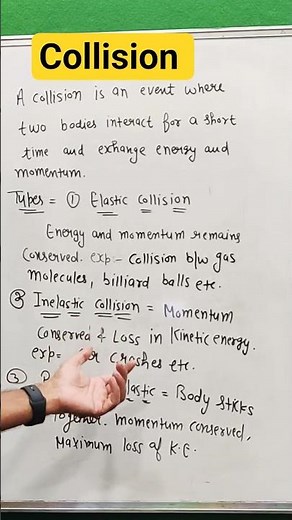 Collision
A collision is an event where
two bodies interact for a short
time and exchange energy and
momentum.
Types = ① Elastic Collision
Energy and momentum remains
Conserved. exp- Collision b/w gas
molecules, billiard balls etc.
② Inelastic Collision = Momentum
Conserved & Loss in Kinetic energy.
exp= crashes etc.
③ = Body sticks
momentum conserved,
Maximum loss of K.E.